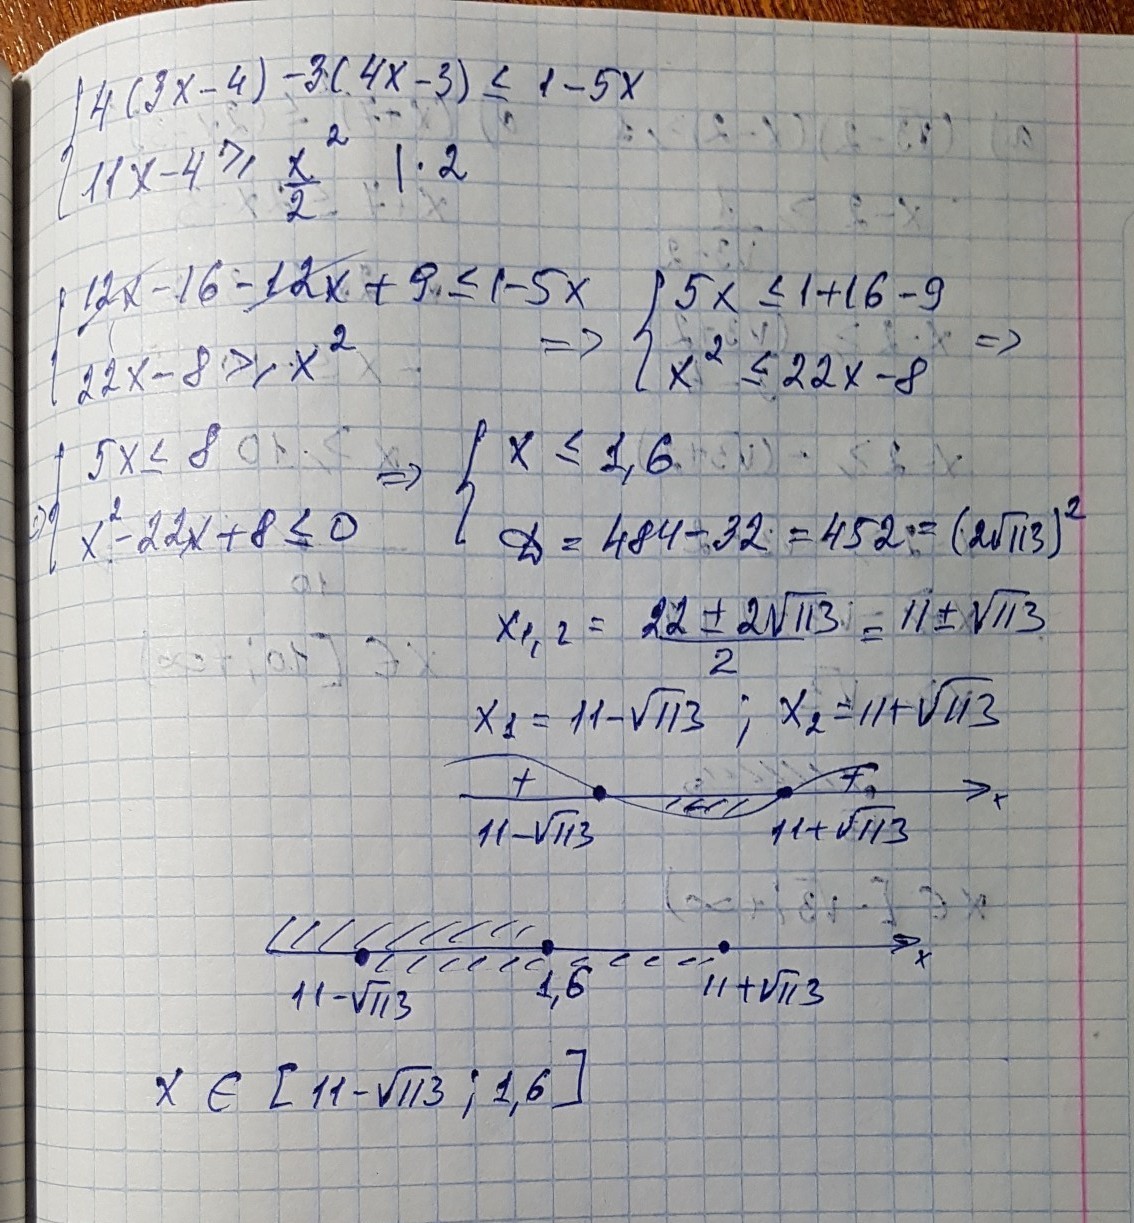 4(3x-4)-3(4x-3) ≤ 1-5x
11x-4 ⩾ x²/2 |·2
12x-16-12x+9 ≤ 1-5x => 5x ≤ 1+16-9
22x-8 ⩾ x² x² ≤ 22x-8 =>
5x ≤ 8 => x ≤ 1,6
x²-22x+8 ≤ 0 D = 484-32 = 452 = (2√113)²
x1,2 = (22±2√113)/2 = 11±√113
x1 = 11-√113 ; x2 = 11+√113
+ + x
11-√113 11+√113
x
11-√113 1,6 11+√113
x ∈ [11-√113 ; 1,6]